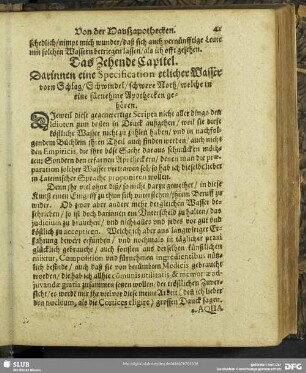 Von der Haußapothecken. 41
schedlich/ nimpt mich wunder/ daß sich auch vernünfftige Leute
mit solchen Wassern betriegen lassen/ als ich offt gesehen.
Das Zehende Capitel.
Darinnen eine Specification etlicher Wasser
vorn Schlag/ Schwindel/ schwere Noth/ welche in
eine fürnehme Apothecken ge-
hören.
DIeweil diese Scripten nicht aller dings den
Idioten zum besten in Druck außgehen/ weil sie diese
köstliche Wasser nicht zu zahlen haben/ und in nachfol-
gendem Büchlein ihren Theil auch finden werden/ auch nicht
den Empiricis, die ihre böse Sache daraus schmücken möch-
ten: Sondern den erfarnen Apotheckern/ denen man die præ-
paration solcher Wasser vertrawen sol/ so hab ich dieselbe lieber
in Lateinischer Sprache proponiren wollen.
Denn ihr viel ohne diß so nicht darzu geweihet/ in diese
Kunst einen Eingriff zu thun sich unterstehen/ ihrem Beruff zu
wider. Ob zwar aber ander mehr dergleichen Wasser be-
schrieben/ so ist doch darinnen ein Unterscheid zu halten/ das
judicium zu brauchen/ und nicht alles von jedes vor gut und
köstlich zu acceptieren. Welche ich aber aus langwiriger Er-
fahrung bewert erfunden/ und nochmals in täglicher praxi
glücklich gebrauche/ auch dessen aus derselben fürsichtigen
mixtur, Composition und fürnehmen ingredientibus nütz-
lich befinde/ auch daß sie von berühmten Medicis gebraucht
worden/ die hab ich allhier communitati & memoriæ
juvandæ gratia zusammen setzen wollen/ der tröstlichen Zuver-
sicht/ es werdt mir ihr viel vor diese meine Arbeit (die ich lieber
den nucleum, als die Cortices eligire) grossen Danck sagen.
AQUA
SLUB
DFG